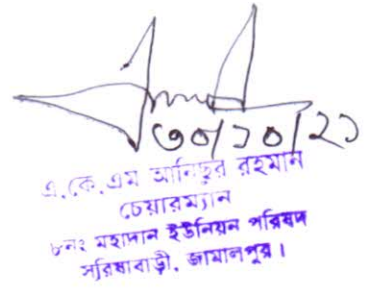 ৩০/১০/২১
এ.কে.এম আনিছুর রহমান
চেয়ারম্যান
৮নং মহাদান ইউনিয়ন পরিষদ
সরিষাবাড়ী, জামালপুর।